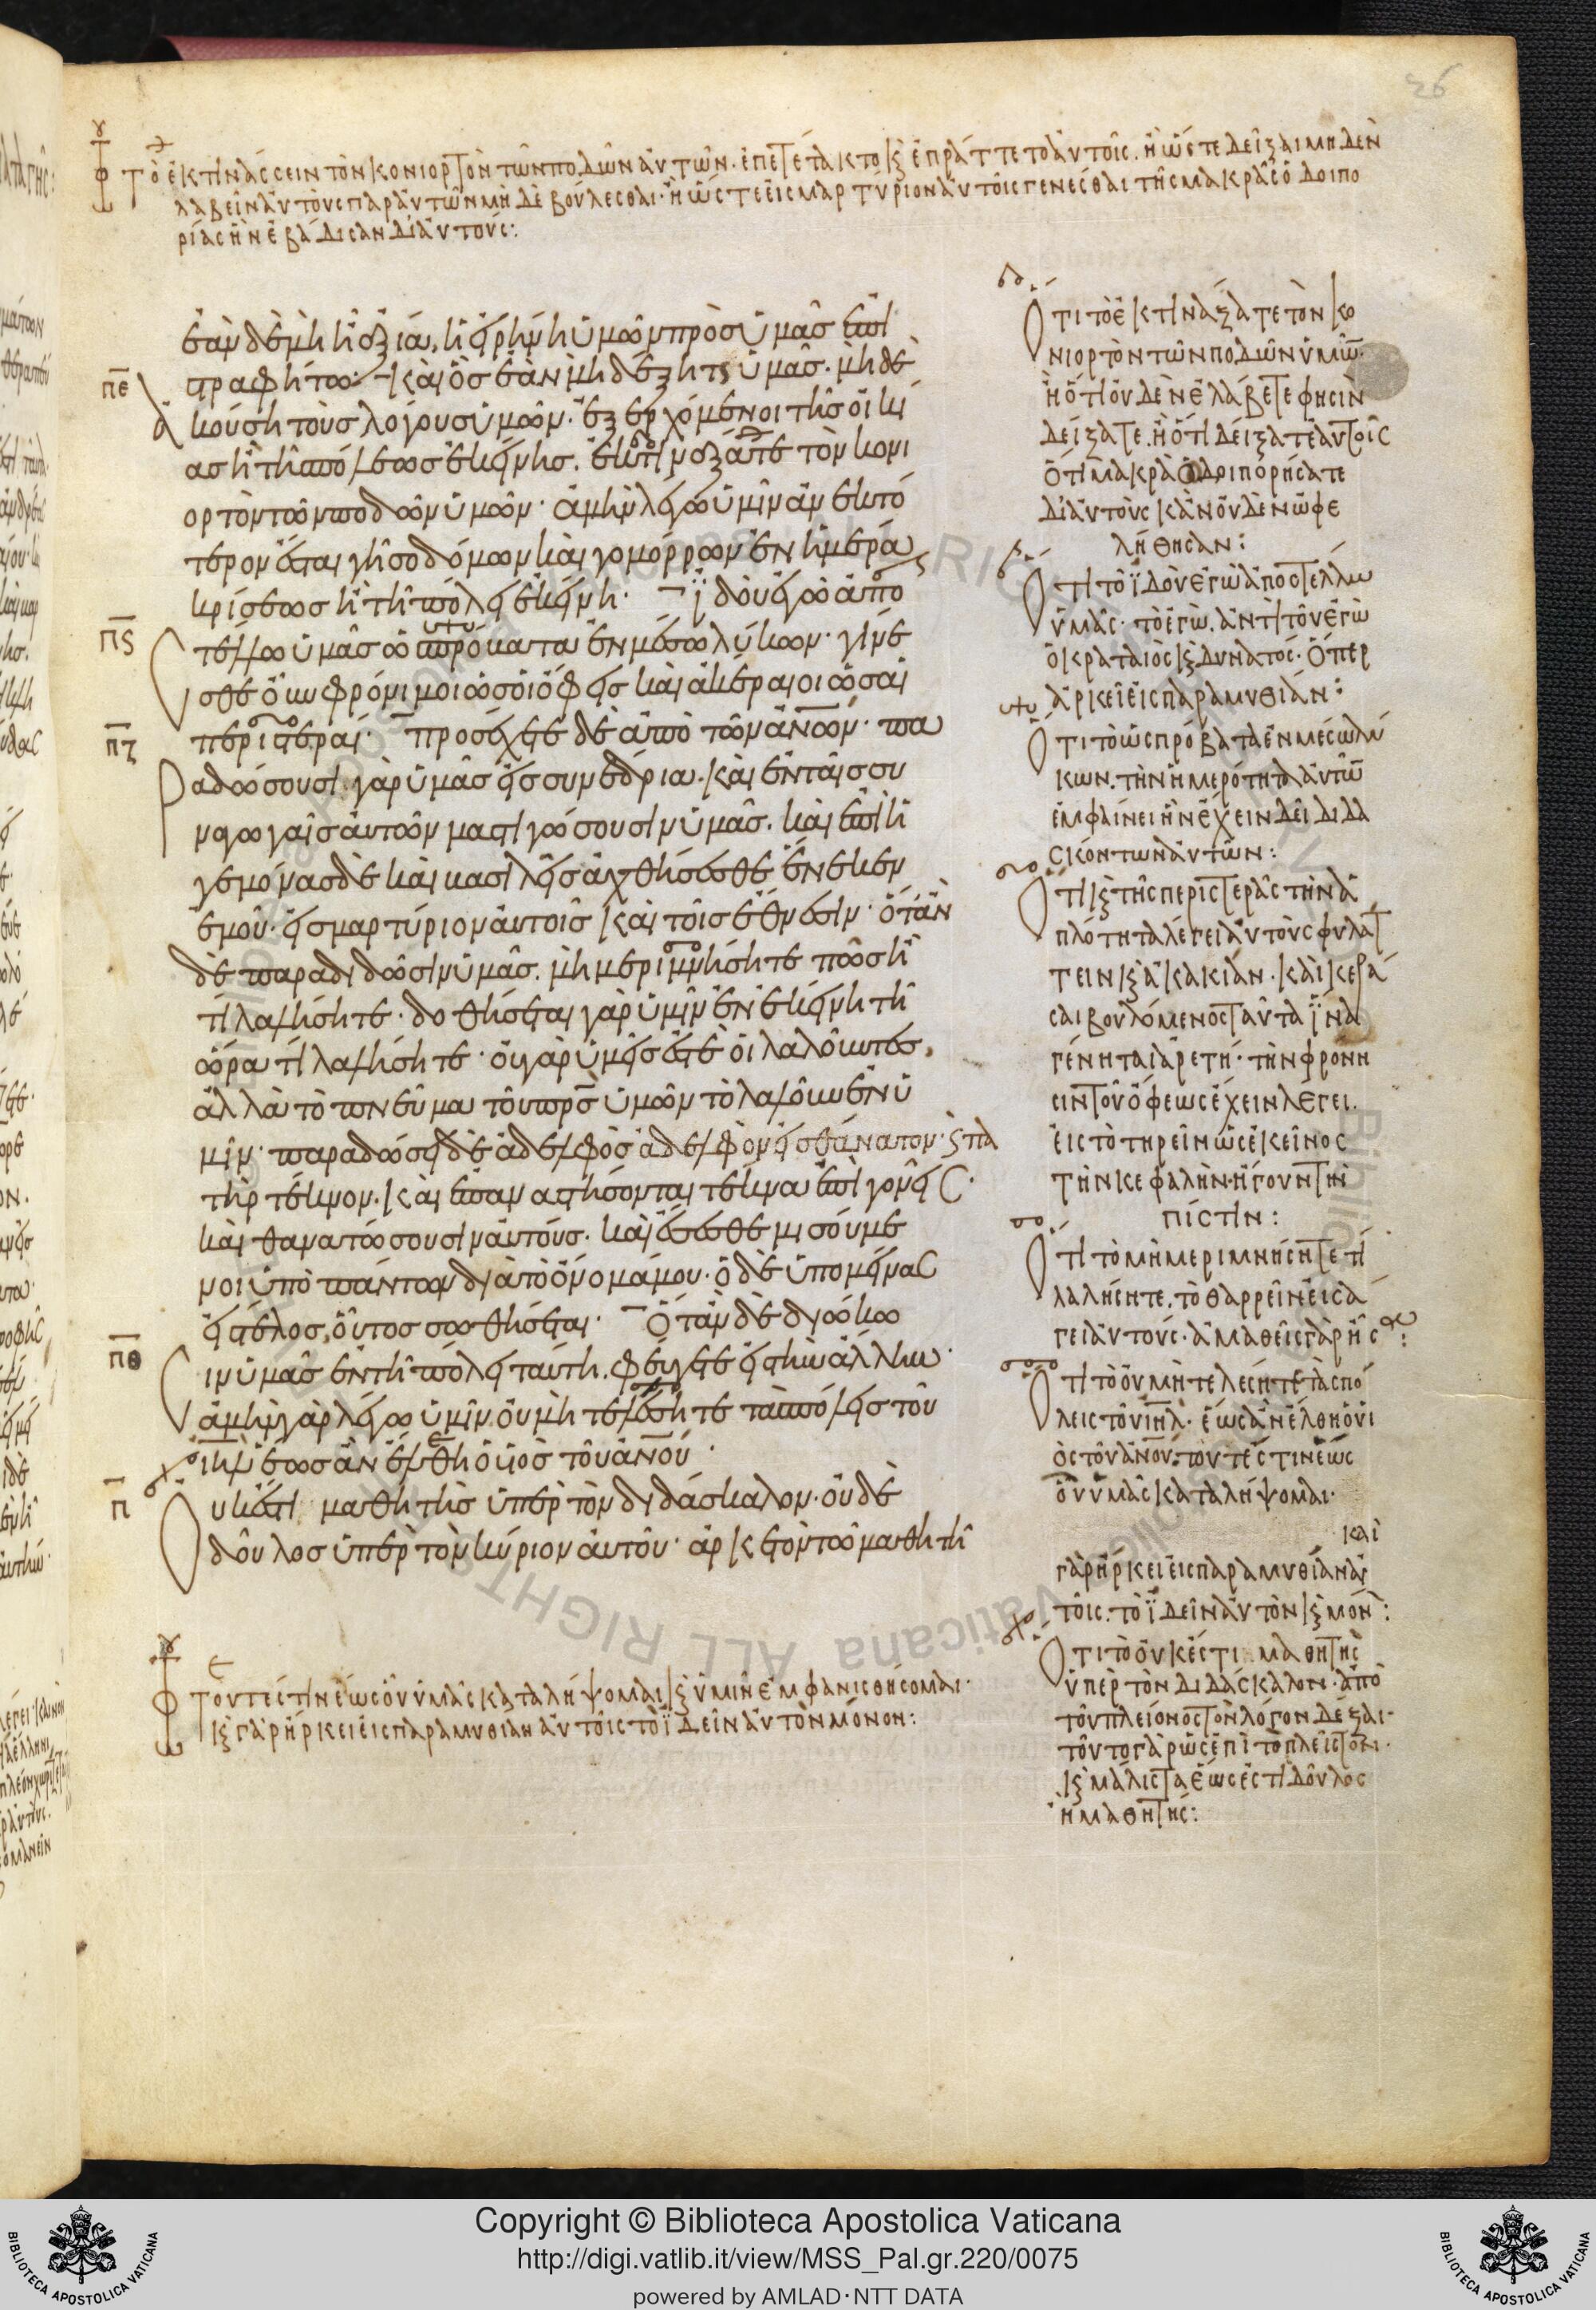 26
Τὸ ἐκτινάσσειν τὸν κονιορτὸν τῶν ποδῶν αὐτῶν· ἐπετέτακτο κ(αὶ) ἐπράττετο αὐτοῖς. ἢ ὥστε δεῖξαι μηδὲν
λαβεῖν αὐτοὺς παρ' αὐτῶν μὴ δὲ βούλεσθαι· ἢ ὥστε εἰς μαρτύριον αὐτοῖς γενέσθαι τῆς μακρᾶς ὁδοιπο
ρίας ἣν ἐβάδισαν δι' αὐτούς:
ἐὰν δὲ μὴ ἦ ἀξία, ἡ εἰρήνη ὑμῶν πρὸς ὑμᾶς ἐπι
πε στραφήτω· καὶ ὃς ἐὰν μὴ δέξηται ὑμᾶς. μὴ δὲ
ἀκούση τοὺς λόγους ὑμῶν· ἐξερχόμενοι τῆς οἰκί
ας ἢ τῆς πόλεως ἐκείνης. ἐκτινάξατε τὸν κονι
ορτὸν τῶν ποδῶν ὑμῶν· ἀμὴν λέγω ὑμῖν ἀνεκτό
τερον ἔσται γῆ σοδόμων καὶ γομόρρων ἐν ἡμέρα
κρίσεως ἢ τῆ πόλει ἐκείνη· ἰδοὺ ἐγὼ ἀπο
πς στέλλω ὑμᾶς ὡς πρόβατα ἐν μέσω λύκων· γίνε
σθε οὖν φρόνιμοι ὡς οἱ ὄφεις καὶ ἀκέραιοι ὡς αἱ
πζ περιστεραί· προσέχετε δὲ ἀπὸ τῶν ἀνων· πα
ραδώσουσι γὰρ ὑμᾶς εἰς συνέδρια. καὶ ἐν ταῖς συ
ναγωγαῖς αὐτῶν μαστιγώσουσιν ὑμᾶς. καὶ ἐπὶ ἡ
γεμόνας δὲ καὶ βασιλεῖς ἀχθήσεσθε ἕνεκεν
ἐμοῦ· εἰς μαρτύριον αὐτοῖς καὶ τοῖς ἔθνεσιν· ὅταν
δὲ παραδιδῶσιν ὑμᾶς. μὴ μεριμνήσητε πῶς ἢ
τί λαλήσητε· δοθήσεται γὰρ ὑμῖν ἐν ἐκείνη τῆ
ὥρα τί λαλήσητε· οὐ γὰρ ὑμεῖς ἐστὲ οἱ λαλοῦντες,
ἀλλὰ τὸ πνεῦμα τοῦ πρς ὑμῶν τὸ λαλοῦν ἐν ὑ
μῖν· παραδώσει δὲ ἀδελφὸς ἀδελφὸν εἰς θάνατον· κ(αὶ) πα
τὴρ τέκνον. καὶ ἐπαναστήσονται τέκνα ἐπὶ γονεῖς·
καὶ θανατώσουσιν αὐτούς· καὶ ἔσεσθε μισούμε
νοι ὑπὸ πάντων διὰ τὸ ὄνομά μου· ὁ δὲ ὑπομείνας
εἰς τέλος, οὗτος σωθήσεται· ὅταν δὲ διώκω
πθ σιν ὑμᾶς ἐν τῆ πόλει ταύτη. φεύγετε εἰς τὴν ἄλλην·
ἀμὴν γὰρ λέγω ὑμῖν. οὐ μὴ τελέσητε τὰς πόλεις τοῦ
ιηλ ἕως ἂν ἔλθη ὁ υἱὸς τοῦ ἀνου·
π Οὐκ ἔστι μαθητὴς ὑπὲρ τὸν διδάσκαλον· οὐδὲ
δοῦλος ὑπὲρ τὸν κύριον αὐτοῦ· ἀρκετὸν τῶ μαθητῆ
Τουτέστιν ἕως οὗ ὑμᾶς καταλήψομαι κ(αὶ) ὑμῖν ἐμφανισθήσομαι·
κ(αὶ) γὰρ ἤρκει εἰς παραμυθίαν αὐτοῖς τὸ ἰδεῖν αὐτὸν μόνον:
Ὅτι τὸ ἐκτινάξατε τὸν κο
νιορτὸν τῶν ποδῶν ὑμῶν·
ἢ ὅτι οὐδὲν ἐλάβετε φησὶν
δείξατε. ἢ ὅτι δείξατε αὐτοῖς
ὅτι μακρὰ ὁδοιπορήσατε
δι' αὐτοὺς κἂν οὐδὲν ὠφε
λήθησαν:
Ὅτι τὸ ἰδοὺ ἐγὼ ἀποστέλλω
ὑμᾶς· τὸ ἐγὼ. ἀντὶ τοῦ ἐγὼ
ὁ κραταιὸς κ(αὶ) δυνατός· ὅπερ
ἀρκεῖ εἰς παραμυθίαν:
Ὅτι τὸ ὡς πρόβατα ἐν μέσω λύ
κων. τὴν ἡμερότητα αὐτῶν
ἐμφαίνει ἣν ἔχειν δεῖ διδα
σκόντων αὐτῶν:
Ὅτι κ(αὶ) τῆς περιστερᾶς τὴν ἁ
πλότητα λέγει αὐτοὺς φυλάτ
τειν κ(αὶ) ἀκακίαν· καὶ κερά
σαι βουλόμενος ταῦτα ἵνα
γένηται ἀρετή· τὴν φρόνη
σιν τοῦ ὄφεως ἔχειν λέγει.
εἰς τὸ τηρεῖν ὡς ἐκεῖνος
τὴν κεφαλὴν· ἤγουν τὴν
πίστιν:
Ὅτι τὸ μὴ μεριμνήσητε τί
λαλήσητε. τὸ θαρρεῖν εἰσά
γει αὐτούς· ἀμαθεῖς γὰρ ἦσαν:
Ὅτι τὸ οὐ μὴ τελέσητε τὰς πό
λεις τοῦ ιηλ· ἕως ἂν ἔλθη ὁ υἱ
ὸς τοῦ ἀνου· τουτέστιν ἕως
οὗ ὑμᾶς καταλήψομαι·
καὶ
γὰρ ἤρκει εἰς παραμυθίαν αὐ
τοῖς. τὸ ἰδεῖν αὐτὸν κ(αὶ) μόν(ον):
Ὅτι τὸ οὐκ ἔστι μαθητὴς
ὑπὲρ τὸν διδάσκαλον· ἀπὸ
τοῦ πλείονος τὸν λόγον δέξαι·
τοῦτο γὰρ ὡς ἐπὶ τὸ πλεῖστον·
κ(αὶ) μάλιστα ἕως ἐστὶ δοῦλος
ἢ μαθητής:
Copyright © Biblioteca Apostolica Vaticana
http://digi.vatlib.it/view/MSS_Pal.gr.220/0075
powered by AMLAD·NTT DATA
BIBLIOTECA APOSTOLICA VATICANA
BIBLIOTECA APOSTOLICA VATICANA